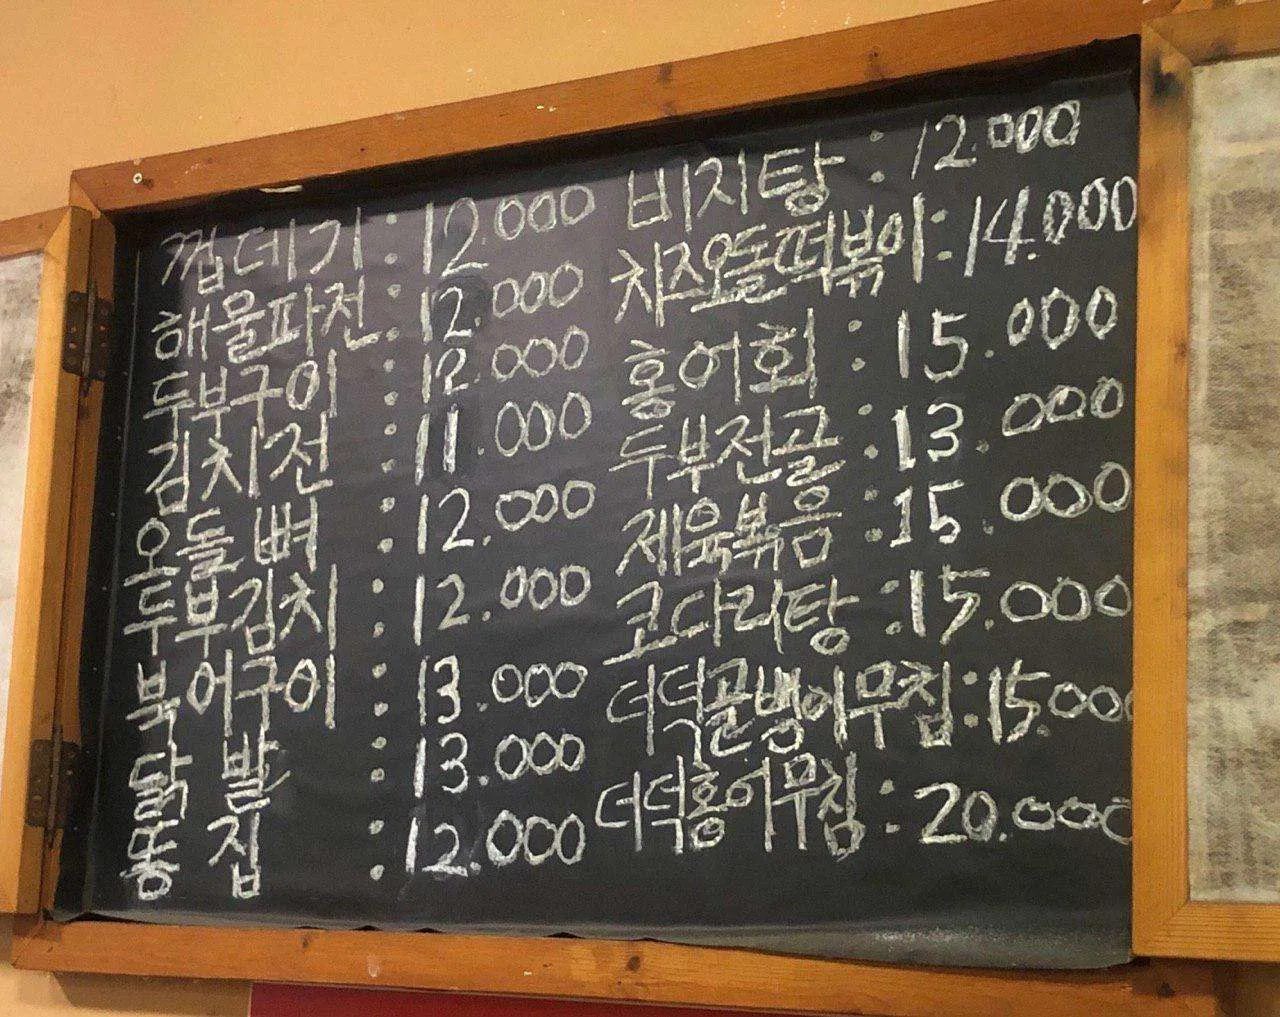 껍데기 : 12.000
해물파전 : 12.000
두부구이 : 12.000
김치전 : 11.000
오돌뼈 : 12.000
두부김치 : 12.000
북어구이 : 13.000
닭발 : 13.000
똥집 : 12.000
비지탕 : 12.000
치즈오돌떡볶이 : 14.000
홍어회 : 15.000
두부전골 : 13.000
제육볶음 : 15.000
코다리탕 : 15.000
더덕골뱅이무침 : 15.000
더덕홍어무침 : 20.000